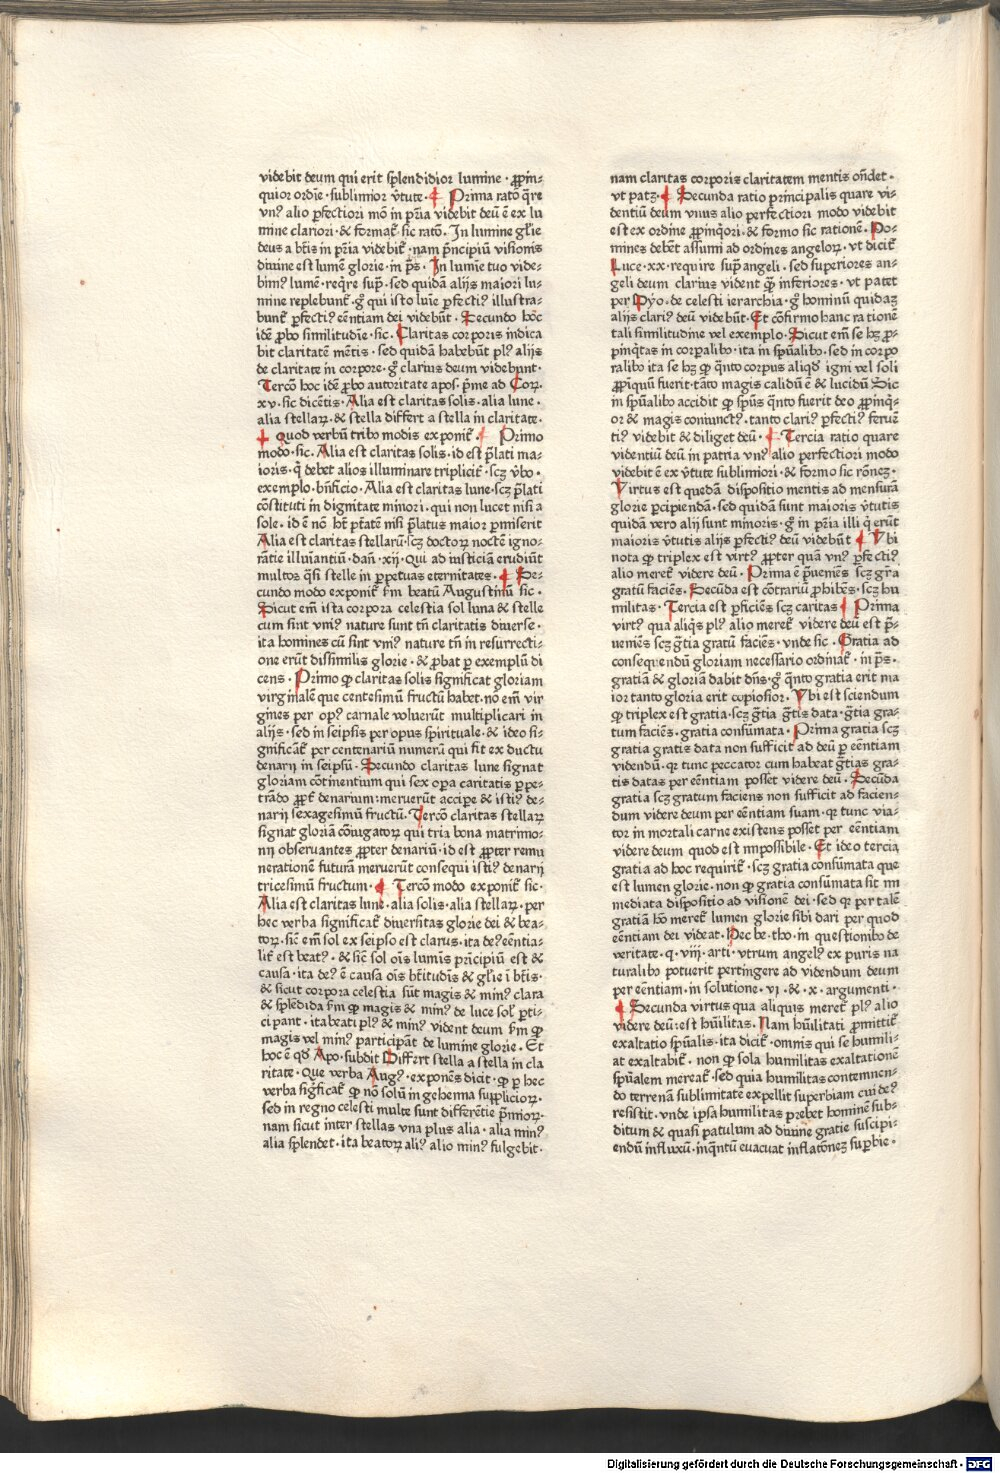 videbit deum qui erit splendidior lumine · ꝓpin-
quior ordīe · sublimior v̄tute · ¶ Prima ratō q̄re
vnꝰ alio ꝑfectiori mō in pr̄ia videbit deū ē ex lu
mine clariori · & formaꝉ sic ratō · In lumine gl'ie
deus a bt̄is in pr̄ia videbiꝉ · nam p̄ncipiū visionis
diuine est lumē glorie · in p̄s · In lumīe tuo vide-
bimꝰ lumē · reqre sup̄ · sed quidā alijs maiori lu-
mine replebunꝉ · gͦ qui isto lūie ꝑfectiꝰ illustra-
bunꝉ ꝑfectiꝰ eēntiam dei videbūt · Secundo hōc
idē ꝓbo similitudīe · sic · Claritas corporis indica
bit claritatē mētis · sed quidā habebūt plꝰ alijs
de claritate in corpore · gͦ clarius deum videbunt ·
Tercō hoc idē ꝓbo autoritate apos · p̄me ad Coꝝ
xv · sic dicētis · Alia est claritas solis · alia lune ·
alia stellaꝝ · & stella differt a stella in claritate ·
¶ quod verbū tribo modis exponiꝉ ¶ Primo
modo · sic · Alia est claritas solis · id est p̄lati ma-
ioris · q̄ debet alios illuminare tripliciꝉ · scꝫ v̄bo ·
exemplo · bn̄ficio · Alia est claritas lune · scꝫ p̄lati
cōstituti in dignitate minori · qui non lucet nisi a
sole · id ē nō hꝉ ptātē nisi p̄latus maior ꝑmiserit
Alia est claritas stellarū · scꝫ doctoꝝ noctē igno-
rātie illuīantiū · dan̄ · xij · Qui ad iusticiā erudiūt
multoꝫ q̄si stelle in ꝑpetuas eternitates · ¶ Se-
cundo modo exponiꝉ s̄m beatū Augustinū sic ·
Sicut em̄ ista corpora celestia sol luna & stelle
cum sint vniꝰ nature sunt tn̄ claritatis diuerse ·
ita homines cū sint vniꝰ nature tn̄ in resurrecti-
one erūt dissimilis glorie · & ꝓbat ꝑ exemplū di
cens · Primo ꝙ claritas solis significat gloriam
virginalē que centesimū fructū habet · nō em̄ vir
gines per opꝰ carnale voluerūt multiplicari in
alijs · sed in seipsis per opus spirituale · & ideo si-
gnificāꝉ per centenariū numerū qui fit ex ductu
denarij in seipsū · Secundo claritas lune signat
gloriam cōtinentium qui sex oꝑa caritatis ꝑpe-
trādo ꝓpꝉ denarium · meruerūt accipe & istiꝰ de-
narij sexagesimū fructū · Tercō claritas stellaꝝ
signat gloriā cōiugatoꝝ qui tria bona matrimo-
nij obseruantes ꝓpter denariū · id est ꝓpter remu
nerationē futurā meruerūt consequi istiꝰ denarij
tricesimū fructum · ¶ Tercō modo exponiꝉ sic ·
Alia est claritas lune · alia solis · alia stellaꝝ · per
hec verba significaꝉ diuersitas glorie dei & bea-
toꝝ · sic̄ em̄ sol ex seipso est clarus · ita deꝰ eēntia-
liꝉ est beatꝰ · & sic̄ sol oīs lumīs pricipiū est &
causa · ita deꝰ ē causa oīs bt̄itudīs & gl'ie ī bt̄is ·
& sicut corpora celestia sūt magis & minꝰ clara
& splēdida s̄m ꝙ magis & minꝰ de luce sol' ꝑti-
cipant · ita beati plꝰ & minꝰ vident deum s̄m ꝙ
magis vel minꝰ participāt de lumine glorie · Et
hoc ē qd̄ Apo · subdit Differt stella a stella in cla
ritate · Que verba Augꝰ · exponēs dicit · ꝙ ꝑ hec
verba sigficaꝉ ꝙ nō solū in gehenna supplicioꝝ ·
sed in regno celesti multe sunt differētie p̄mioꝝ ·
nam sicut inter stellas vna plus alia · alia minꝰ
alia splendet · ita beatoꝝ aliꝰ alio minꝰ fulgebit ·
nam claritas corporis claritatem mentis on̄det ·
vt patꝫ · ¶ Secunda ratio principalis quare vi-
dentiū deum vnus alio perfectiori modo videbit
est ex ordine ꝓpinqͥori · & formo sic rationē · Ho-
mines debēt assumi ad ordines angeloꝝ · vt diciꝉ
Luce · xx · require sup̄ angeli · sed superiores an-
geli deum clarius vident ꝙ̄ inferiores · vt patet
per Dyo · de celesti ierarchia · gͦ hominū quidaꝫ
alijs clariꝰ deū videbūt · Et cōfirmo hanc rationē
tali similitudine vel exemplo · Sicut em̄ se hꝫ ꝓ-
pinq̄tas in corꝑalibo · ita in spūalibo · sed in corpo
ralibo ita se hꝫ ꝙ q̄nto corpus aliqd̄ igni vel soli
ꝓpiquū fuerit · tāto magis calidū ē & lucidū Sic
in spūalibo accidit ꝙ spūs q̄nto fuerit deo ꝓpinqͥ-
or & magis coniunctꝰ · tanto clariꝰ ꝑfectiꝰ feruē
tiꝰ videbit & diliget deū · ¶ Tercia ratio quare
videntiū deū in patria vnꝰ alio perfectiori modo
videbit ē ex v̄tute sublimiori · & formo sic rōneꝫ ·
Virtus est quedā dispositio mentis ad mensurā
glorie ꝑcipiendā · sed quidā sunt maioris v̄tutis
quidā vero alij sunt minoris · gͦ in pr̄ia illi q̄ erūt
maioris v̄tutis alijs ꝑfectiꝰ deū videbūt ¶ Vbi
nota ꝙ triplex est virtꝰ · ꝓpter quā vnꝰ ꝑfectiꝰ
alio mereꝉ videre deū · Prima ē p̄ueniēs scꝫ gr̄a
gratū faciēs · Secūda est cōtrariū ꝓhibēs · scꝫ hu
militas · Tercia est ꝑficiēs scꝫ caritas ¶ Prima
virtꝰ qua aliqͥs plꝰ alio mereꝉ videre deū est p̄-
ueniēs scꝫ gr̄tia gratū faciēs · vnde sic · Gratia ad
consequendū gloriam necessario ordinaꝉ · in p̄s ·
gratiā & gloriā dabit dn̄s · gͦ q̄nto gratia erit ma
ior tanto gloria erit copiosior · Vbi est sciendum
ꝙ triplex est gratia · scꝫ gr̄tia gr̄tis data · gr̄tia gra-
tum faciēs · gratia consūmata · Prima gratia scꝫ
gratia gratis data non sufficit ad deū ꝑ eēntiam
videndū · qꝛ tunc peccator cum habeat gr̄tias gra-
tis datas per eēntiam posset videre deū · Secūda
gratia scꝫ gratum faciens non sufficit ad facien-
dum videre deum per eēntiam suam · qꝛ tunc via-
tor in mortali carne existens posset per eēntiam
videre deum quod est impossibile · Et ideo tercia
gratia ad hoc requiriꝉ · scꝫ gratia consūmata que
est lumen glorie · non ꝙ gratia consūmata sit im
mediata dispositio ad visionē dei · sed qꝛ per talē
gratiā hō mereꝉ lumen glorie sibi dari per quod
eēntiam dei videat · Hec be · tho · in questionibo de
veritate · q · viij · arti · vtrum angelꝰ ex puris na
turalibo potuerit pertingere ad videndum deum
per eēntiam · in solutione · vi · & · x · argumenti ·
¶ Secunda virtus qua aliquis mereꝉ plꝰ alio
videre deū · est hūilitas · Nam hūilitati ꝓmittiꝉ
exaltatio spūalis · ita diciꝉ · omnis qui se humili-
at exaltabiꝉ · non ꝙ sola humilitas exaltationē
spūalem mereaꝉ · sed quia humilitas contemnen-
do terrenā sublimitatē expellit superbiam cui deꝰ
resistit · vnde ipsa humilitas prebet hominē sub-
ditum & quasi patulum ad diuine gratie suscipi-
endū influxū · inq̄ntū euacuat inflationeꝫ suꝑbie ·
Digitalisierung gefördert durch die Deutsche Forschungsgemeinschaft - DFG